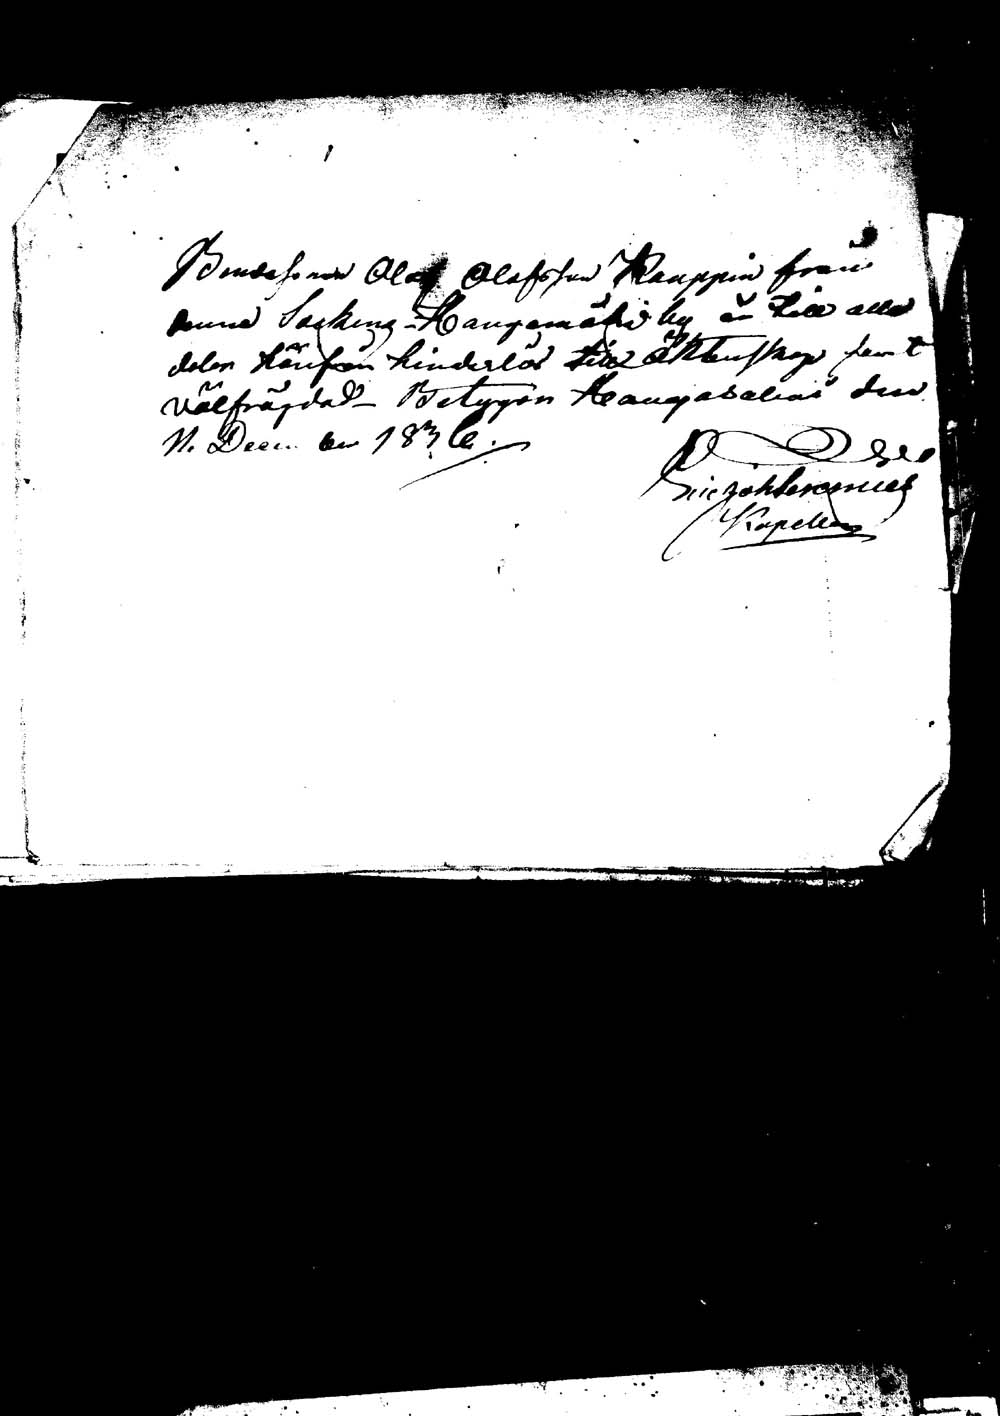 Bondesonen Olof Olofsson Kauppin från
denne Sockens Haugamäki by är till alla
delar härifrån hinderlös till äktenskap samt
välfrägdad – Betygar Kaugasalmi den
11. December 183
Kapellan